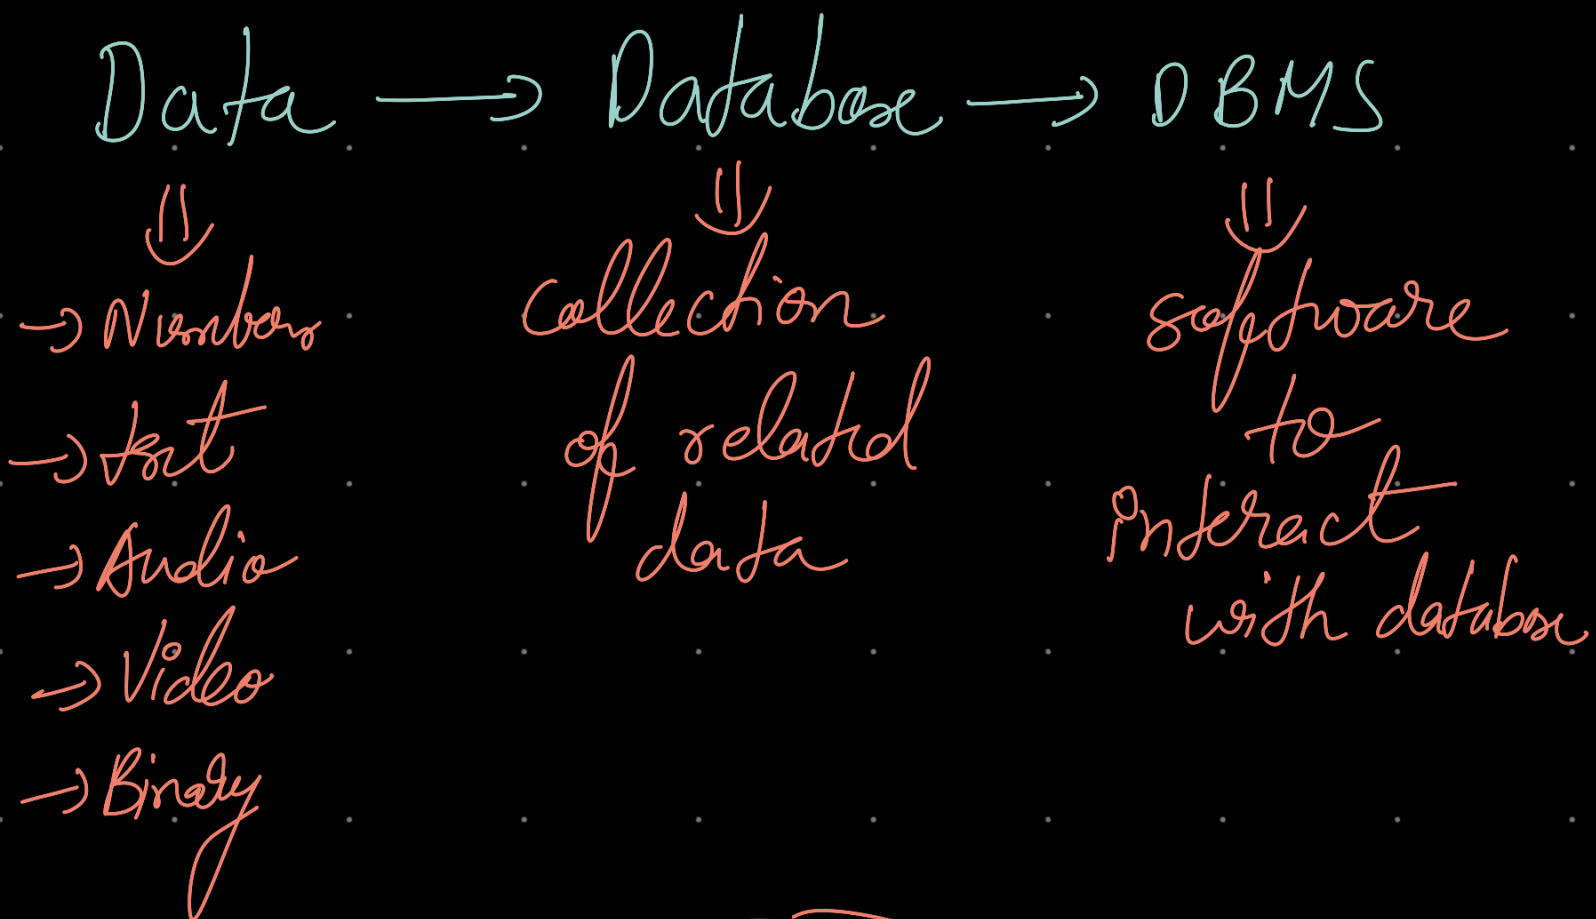 Data → Database → DBMS
→ Numbers
→ Text
→ Audio
→ Video
→ Binary
Collection
of related
data
software
to
interact
with database